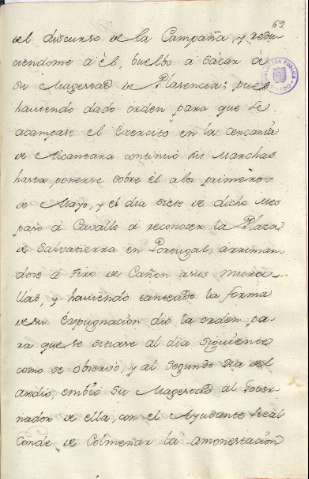 63
del discurso de la Campaña, y redu
ciendome à èl, buelbo a sacàr à
Su Magestad de Plasencia; pues
haviendo dado orden para que se
acampase el Exercito en la cercanìa
de Alcantara continuò sus Marchas
hasta ponerse sobre èl a los primeros
de Mayo, y el dia siete de dicho Mes
pasò à Cavallo à reconocer la Plaza
de Salvatierra en Portugal, arriman
dose à tiro de Cañon à sus Mura
llas, y haviendo la forma
de su Expugnaciòn dio la orden pa
ra que se sitiase al dia siguiente
como se observò, y al segundo dia del
asedio, embiò Su Magestad al Gover
nador de ella, con el Ayudante Real
Conde de Colmenar la amonestaciòn